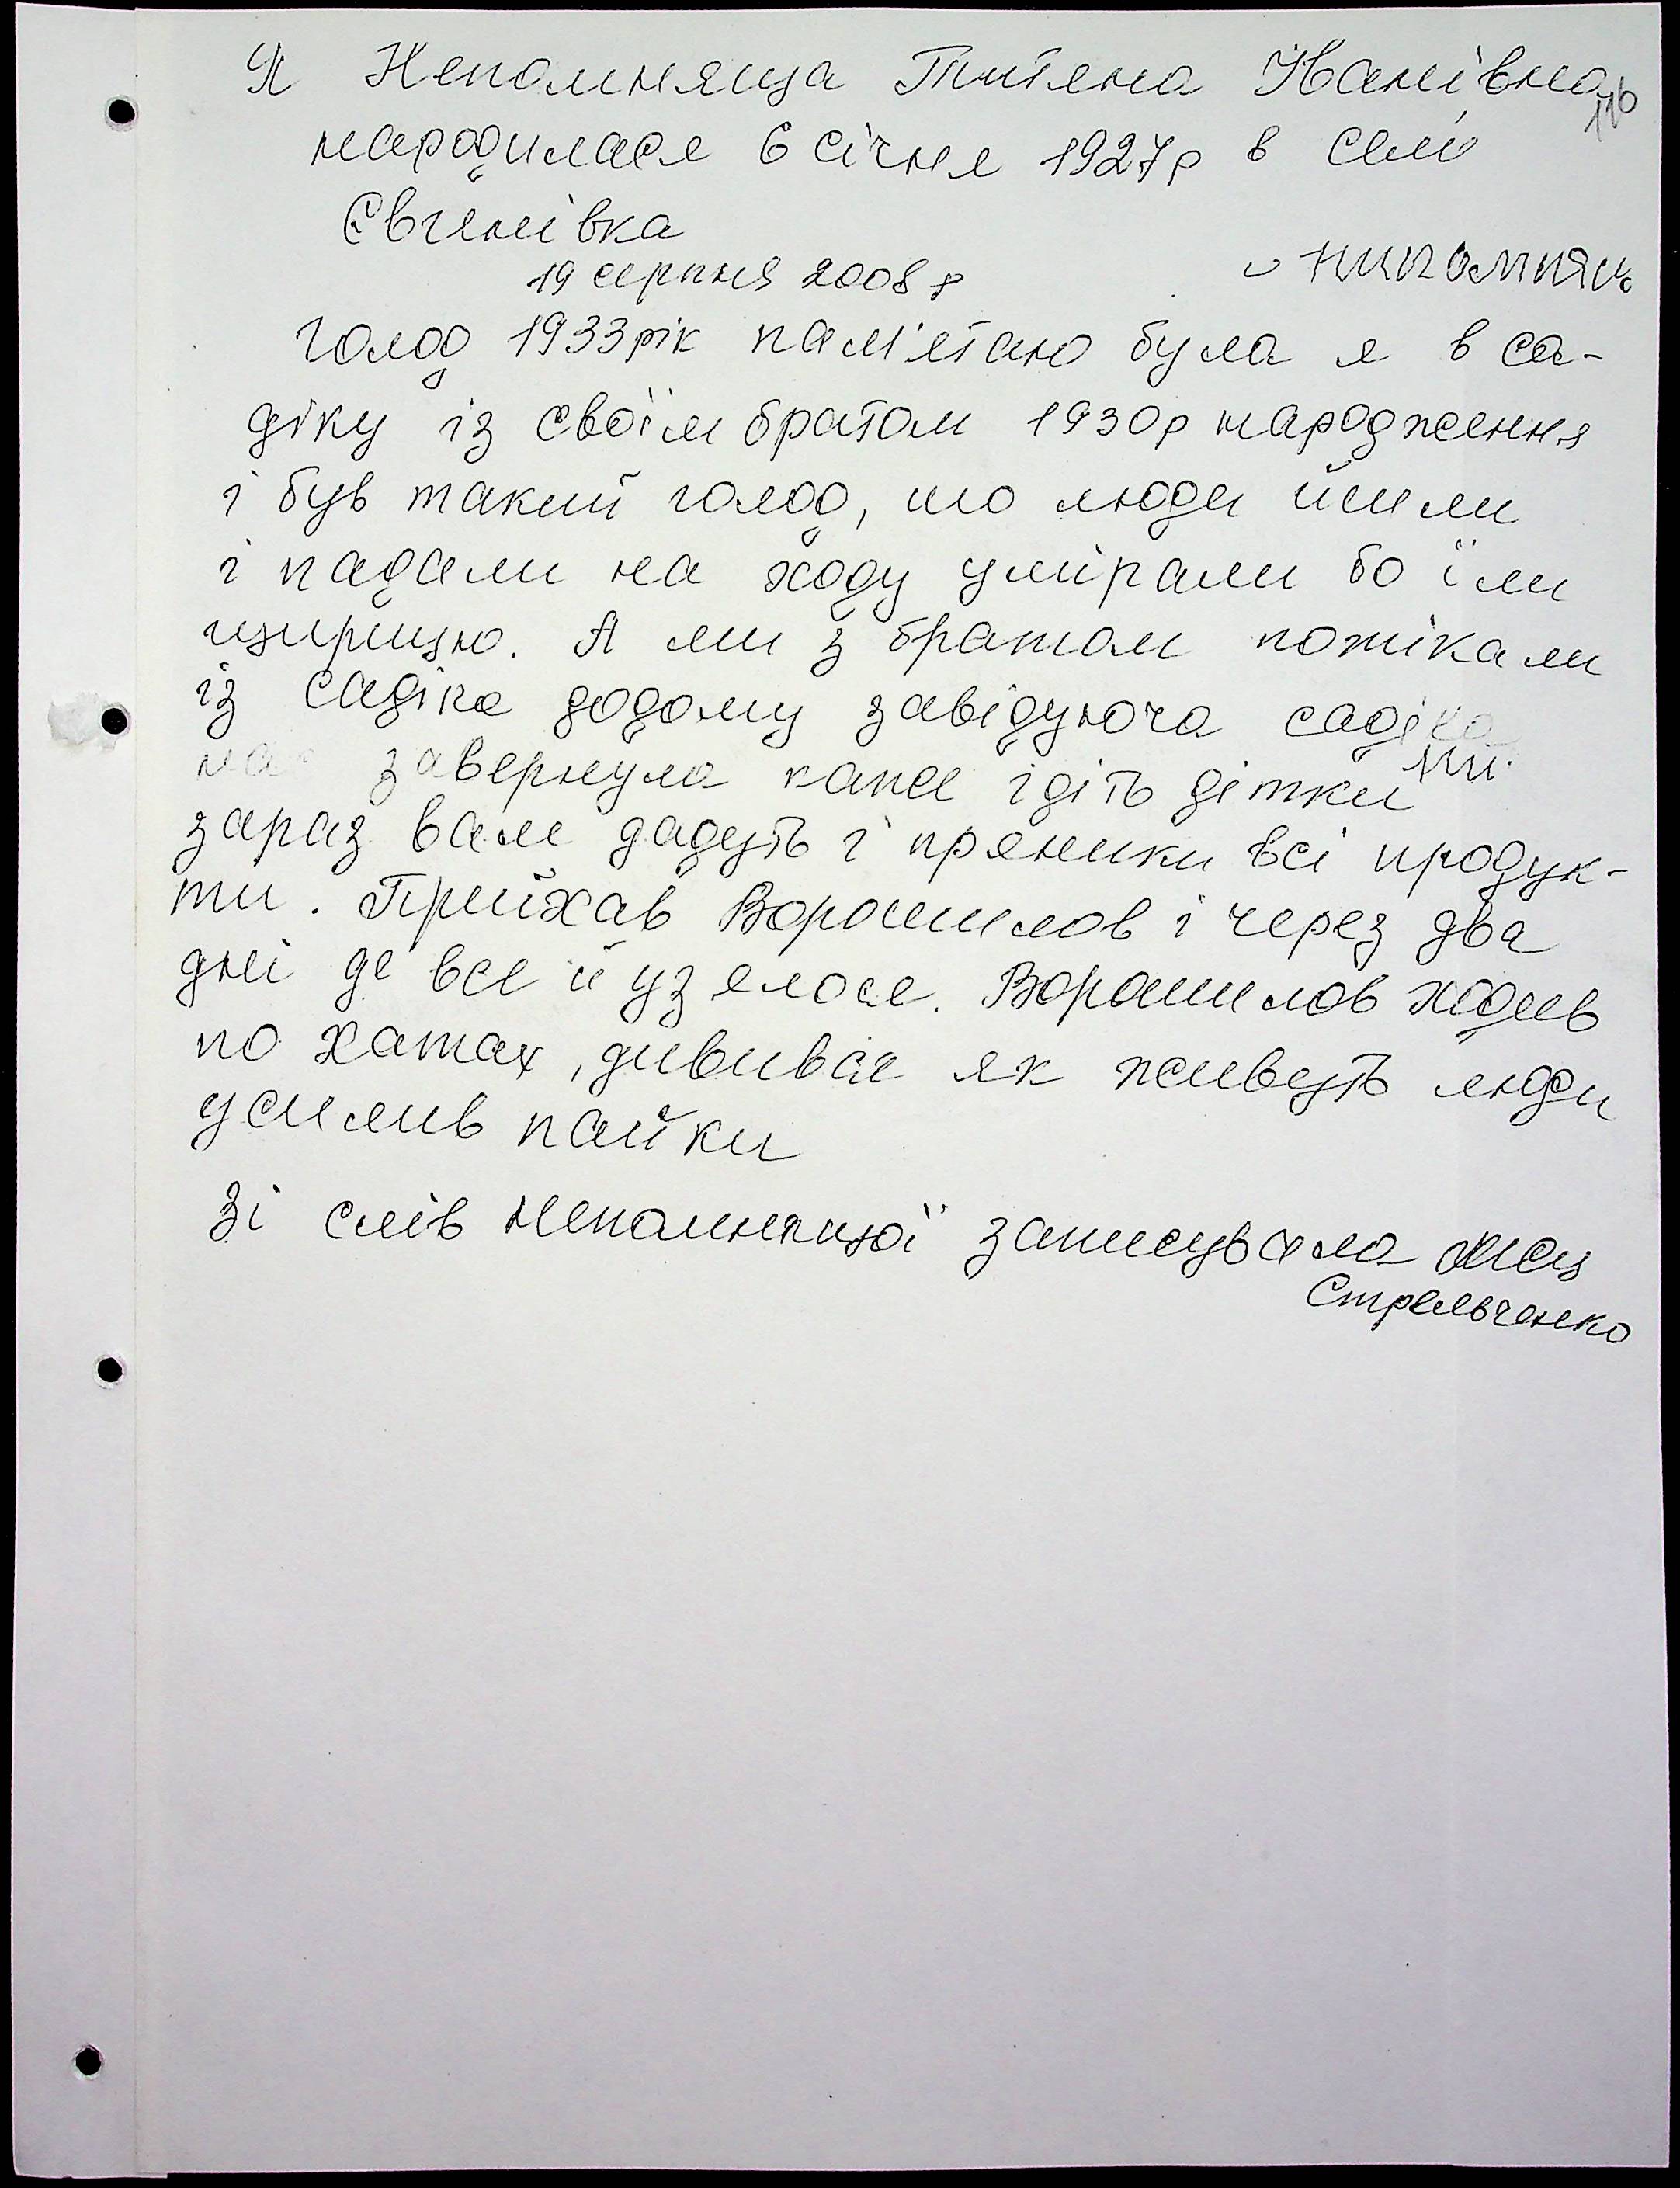 Я Непомняща Титяна Іванівна
116
народилася 6 січня 1927р в селі
Євгенівка
19 серпня 2008 р
нипомнящ
голод 1933 рік пам'ятаю була я в са-
діку із своїм братом 1930р народження
і був такий голод, шо люди йшли
і падали на ходу умірали бо їли
щирицю. А ми з братом потікали
із садіка додому завідуюча садіка
нас завернула каже ідіть дітки
зараз вам дадуть і пряники всі продук-
ти. Приїхав Ворошилов і через два
дні де все й узялося. Ворошилов ходив
по хатах, дививсе як живуть люди
усилив пайки
Зі слів Непомнящої записувала
Стрельченко